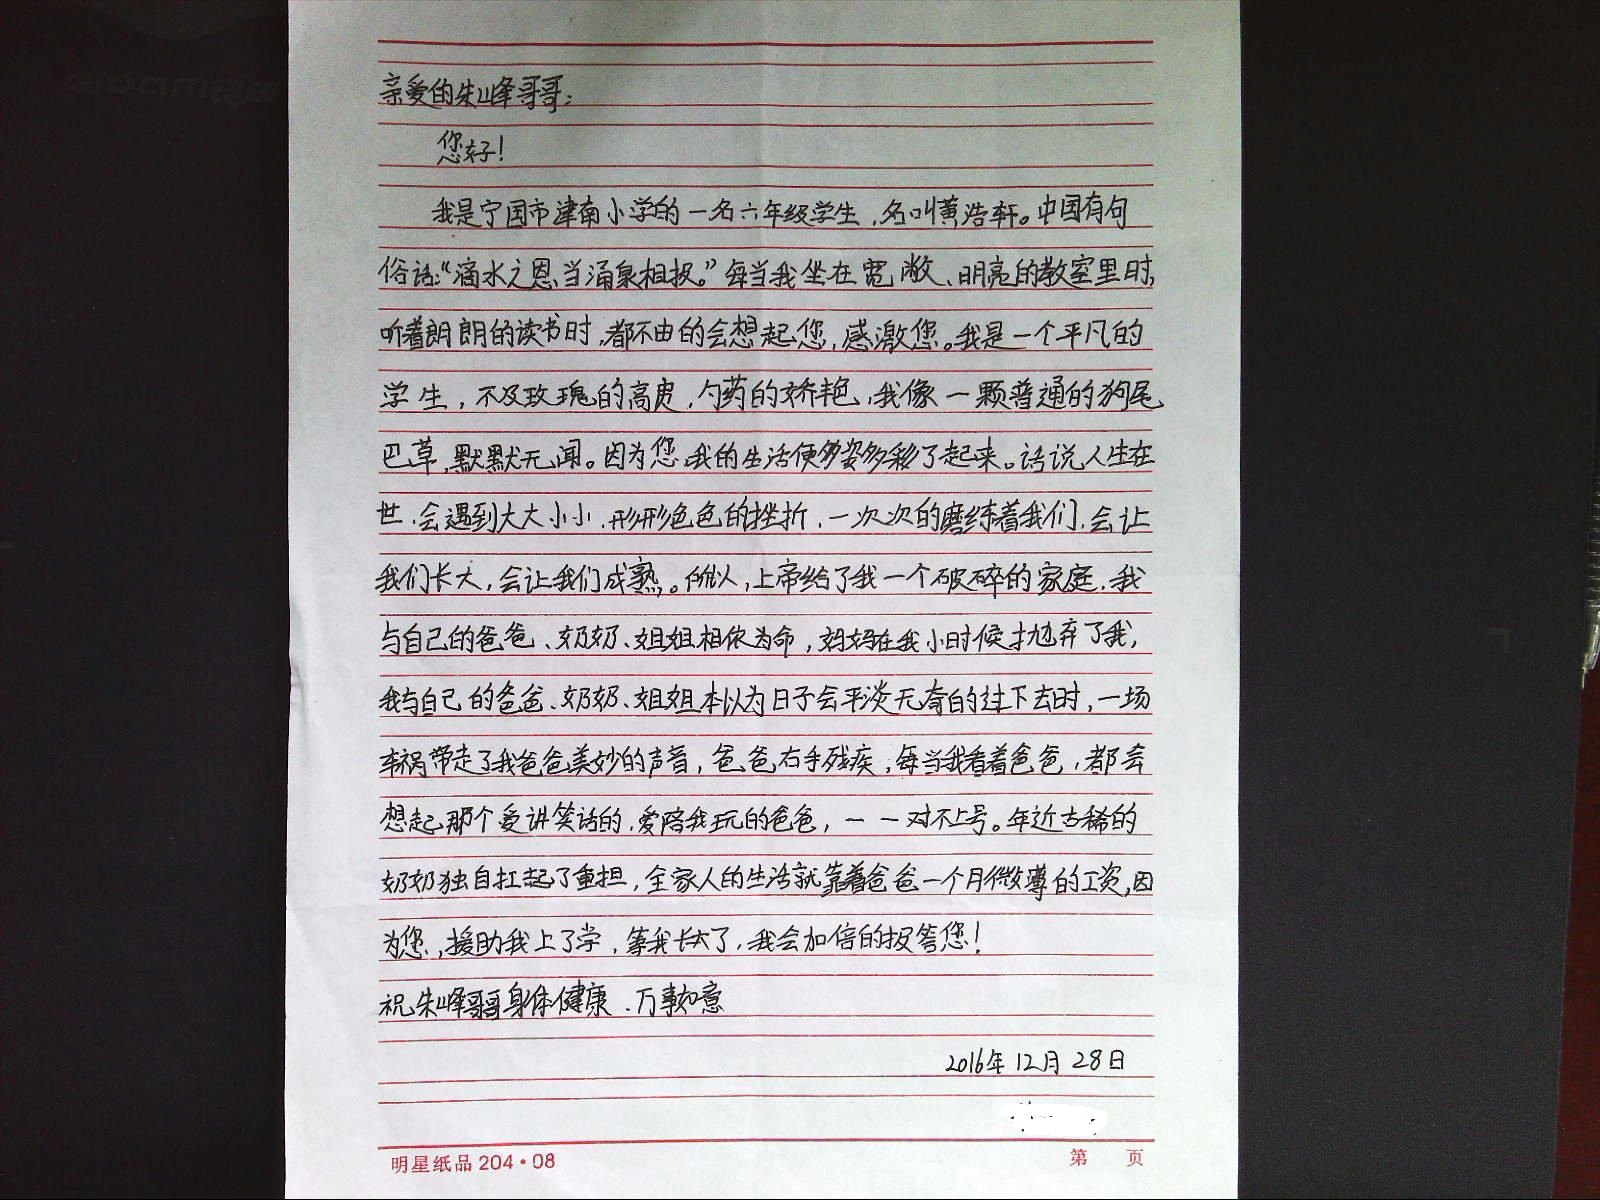 亲爱的朱峰哥哥：
您好！
我是宁国市津南小学的一名六年级学生，名叫黄浩轩。中国有句
俗话：“滴水之恩，当涌泉相报。”每当我坐在宽敞、明亮的教室里时，
听着朗朗的读书时，都不由的会想起您，感激您。我是一个平凡的
学生，不及玫瑰的高贵，勺药的娇艳，我像一颗普通的狗尾
巴草，默默无闻。因为您，我的生活便多姿多彩了起来。话说人生在
世，会遇到大大小小，形形色色的挫折，一次次的磨练着我们，会让
我们长大，会让我们成熟。但，上帝给了我一个破碎的家庭，我
与自己的爸爸、奶奶、姐姐相依为命，妈妈在我小时候抛弃了我，
我与自己的爸爸、奶奶、姐姐本以为日子会平淡无奇的过下去时，一场
车祸带走了我爸爸美妙的声音，爸爸右手残疾，每当我看着爸爸，都会
想起那个爱讲笑话的，爱陪我玩的爸爸，一一对不上号。年近古稀的
奶奶独自扛起了重担，全家人的生活就靠着爸爸一个月微薄的工资，因
为您，援助我上了学，等我长大了，我会加倍的报答您！
祝朱峰哥哥身体健康，万事如意
2016年12月28日
明星纸品 204·08
第 页